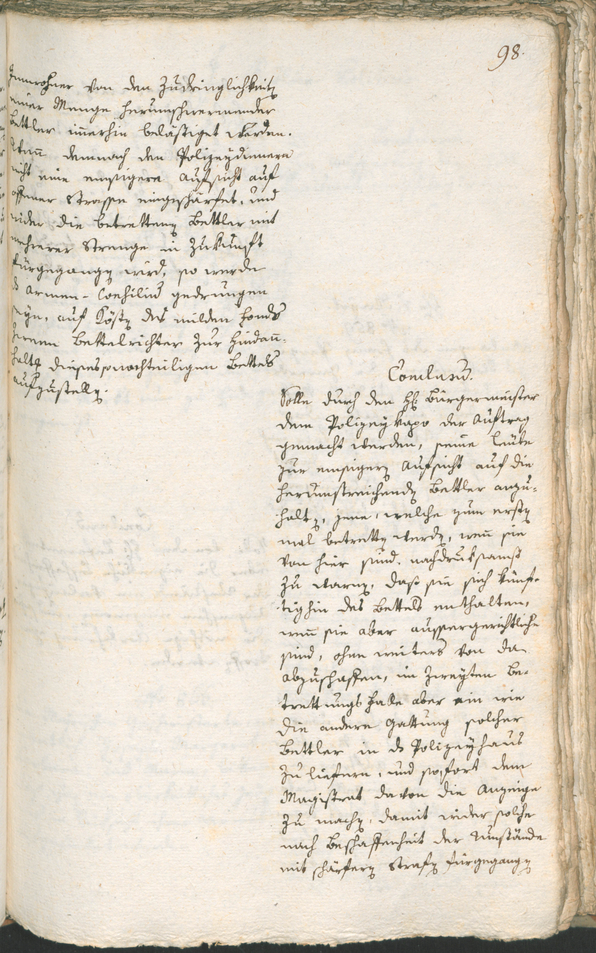 98.
Innwohner von den Zudringlichkeitn
einer Menge herumschwermender
Bettler immerhin belästiget werden.
Wenn demnach den Polizeydienern
nicht eine emsigere Aufsicht auf
offener Strasse eingeschärfet, und
wider die betrettenn Bettler mit
mehrerer Strenge in Zukunft
fürgegangen wird, so werde
ds Armen-Consilium gedrungen
seyn, auf Kösten des milden Fonds
einem Bettelrichter zur Hindan-
haltg dieses so nachteiligen Bettels
aufzustellen.
Conclusum.
Solle durch den H. Bürgermeister
dem Polizeykapo der Auftrag
gemacht werden, seine Leute
zur emsigern Aufsicht auf die
herumstreichenden Bettler anzu-
halten, jene, welche zum ersten
mal betretten werden, wenn sie
von hier sind, nachdruksamst
zu warnen, dass sie sich künf-
tighin des Bettels enthalten,
wenn sie aber aussergerichtliche
sind, ohne weiters von da
abzuschaffen, im zweyten Be-
trettungsfalle aber ein wie
die andere Gattung solcher
Bettler in ds Polizeyhaus
zu liefern, und sofort dem
Magistrat davon die Anzeige
zu machen, damit wider solche
nach Beschaffenheit der Umstände
mit schärfern Strafen fürgegangen